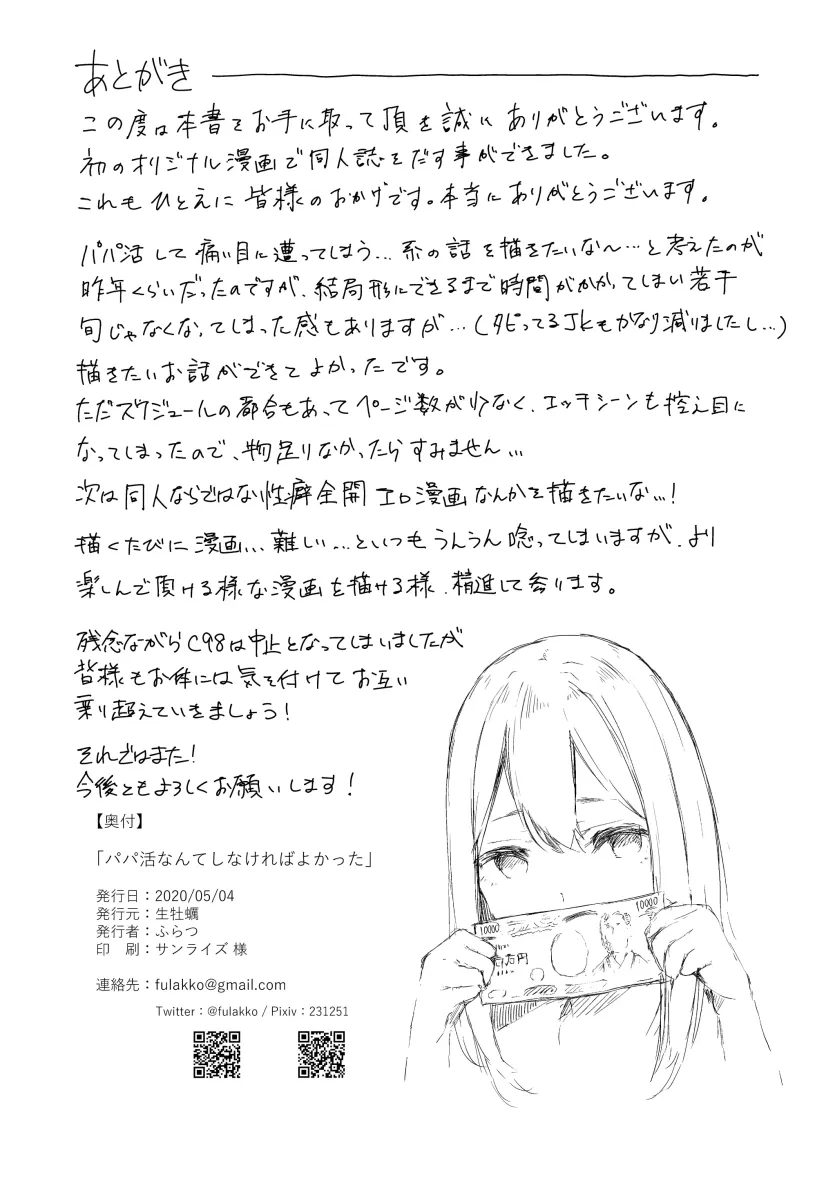 あとがき
この度は本書をお手に取って頂き誠にありがとうございます。
初のオリジナル漫画で同人誌をだす事ができました。
これもひとえに皆様のおかげです。本当にありがとうございます。
パパ活して痛い目に遭ってしまう…系の話を描きたいな〜…と考えたのが
昨年くらいだったのですが、結局形にできるまで時間がかかってしまい若干
旬じゃなくなってしまった感もありますが…(タピってるJKもかなり減りましたし…)
描きたいお話ができてよかったです。
ただスケジュールの都合もあってページ数が少なく、エッチシーンも控え目に
なってしまったので、物足りなかったらすみません…
次は同人ならではな性癖全開エロ漫画なんかを描きたいな…!
描くたびに漫画…難しい…といつもうんうん唸ってしまいますが、より
楽しんで頂ける様な漫画を描ける様、精進して参ります。
残念ながらC98は中止となってしまいましたが
皆様もお体には気を付けてお互い
乗り超えていきましょう!
それではまた!
今後ともよろしくお願いします!
【奥付】
「パパ活なんてしなければよかった」
発行日：2020/05/04
発行元：生牡蠣
発行者：ふらつ
印　刷：サンライズ 様
連絡先：fulakko@gmail.com
Twitter：@fulakko / Pixiv：231251
10000
10000
万円